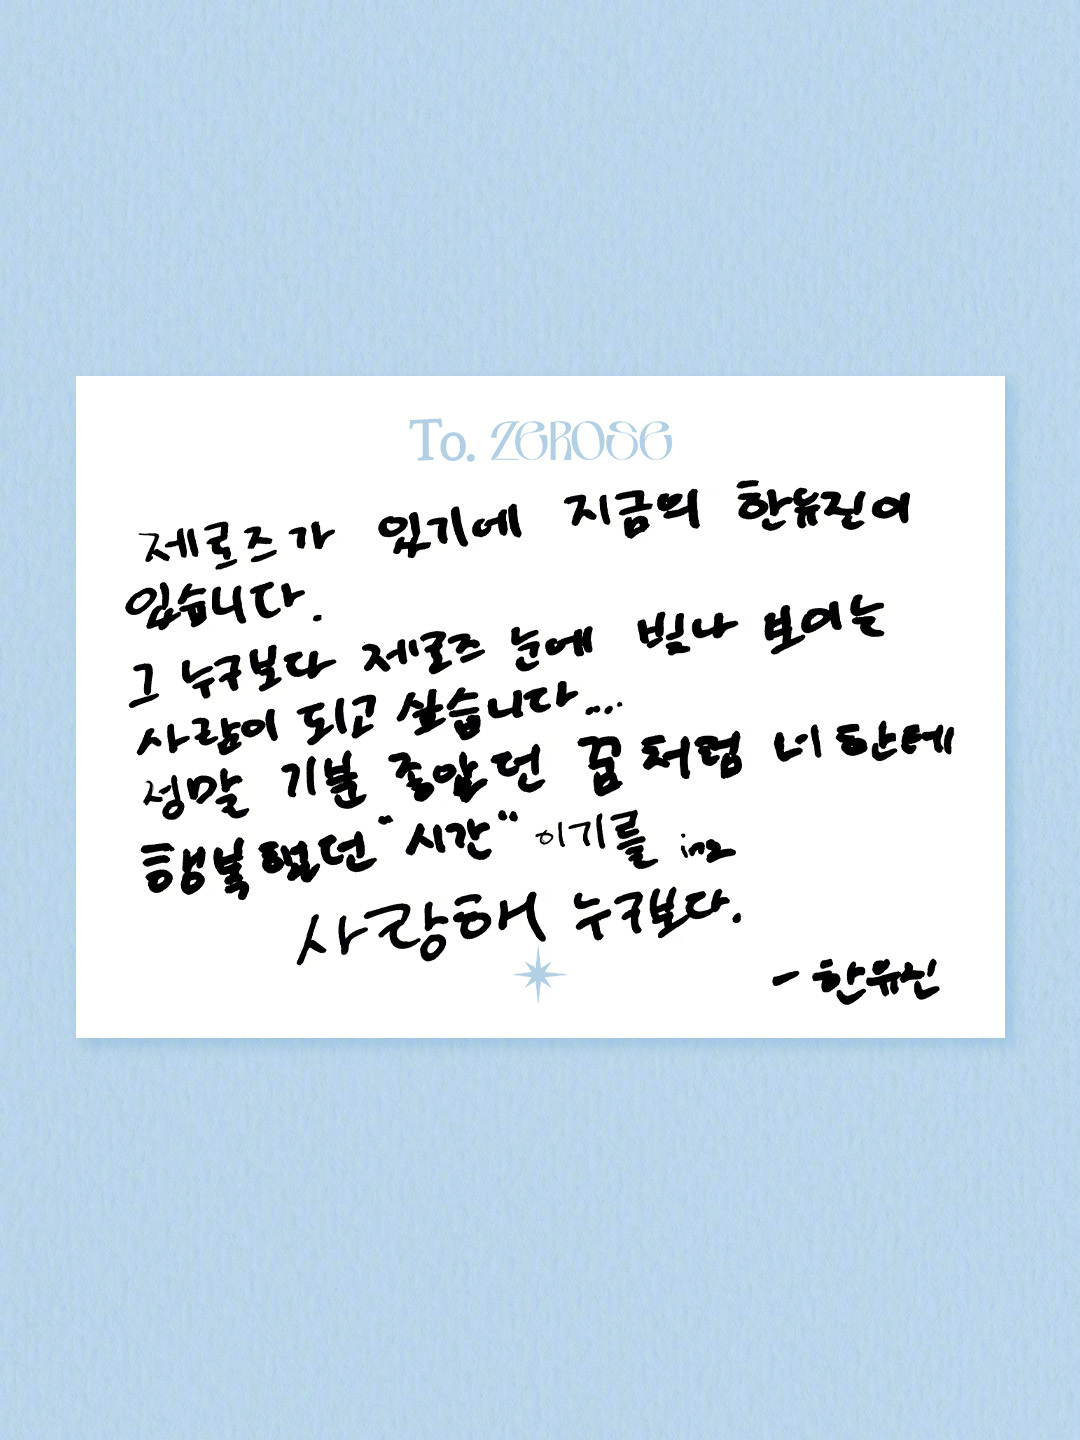 To. ZEROSE
제로즈가 있기에 지금의 한유진이
있습니다.
그 누구보다 제로즈 눈에 빛나 보이는
사람이 되고 싶습니다...
정말 기분 좋았던 꿈처럼 너한테
행복했던 "시간" 이기를
사랑해 누구보다.
- 한유진